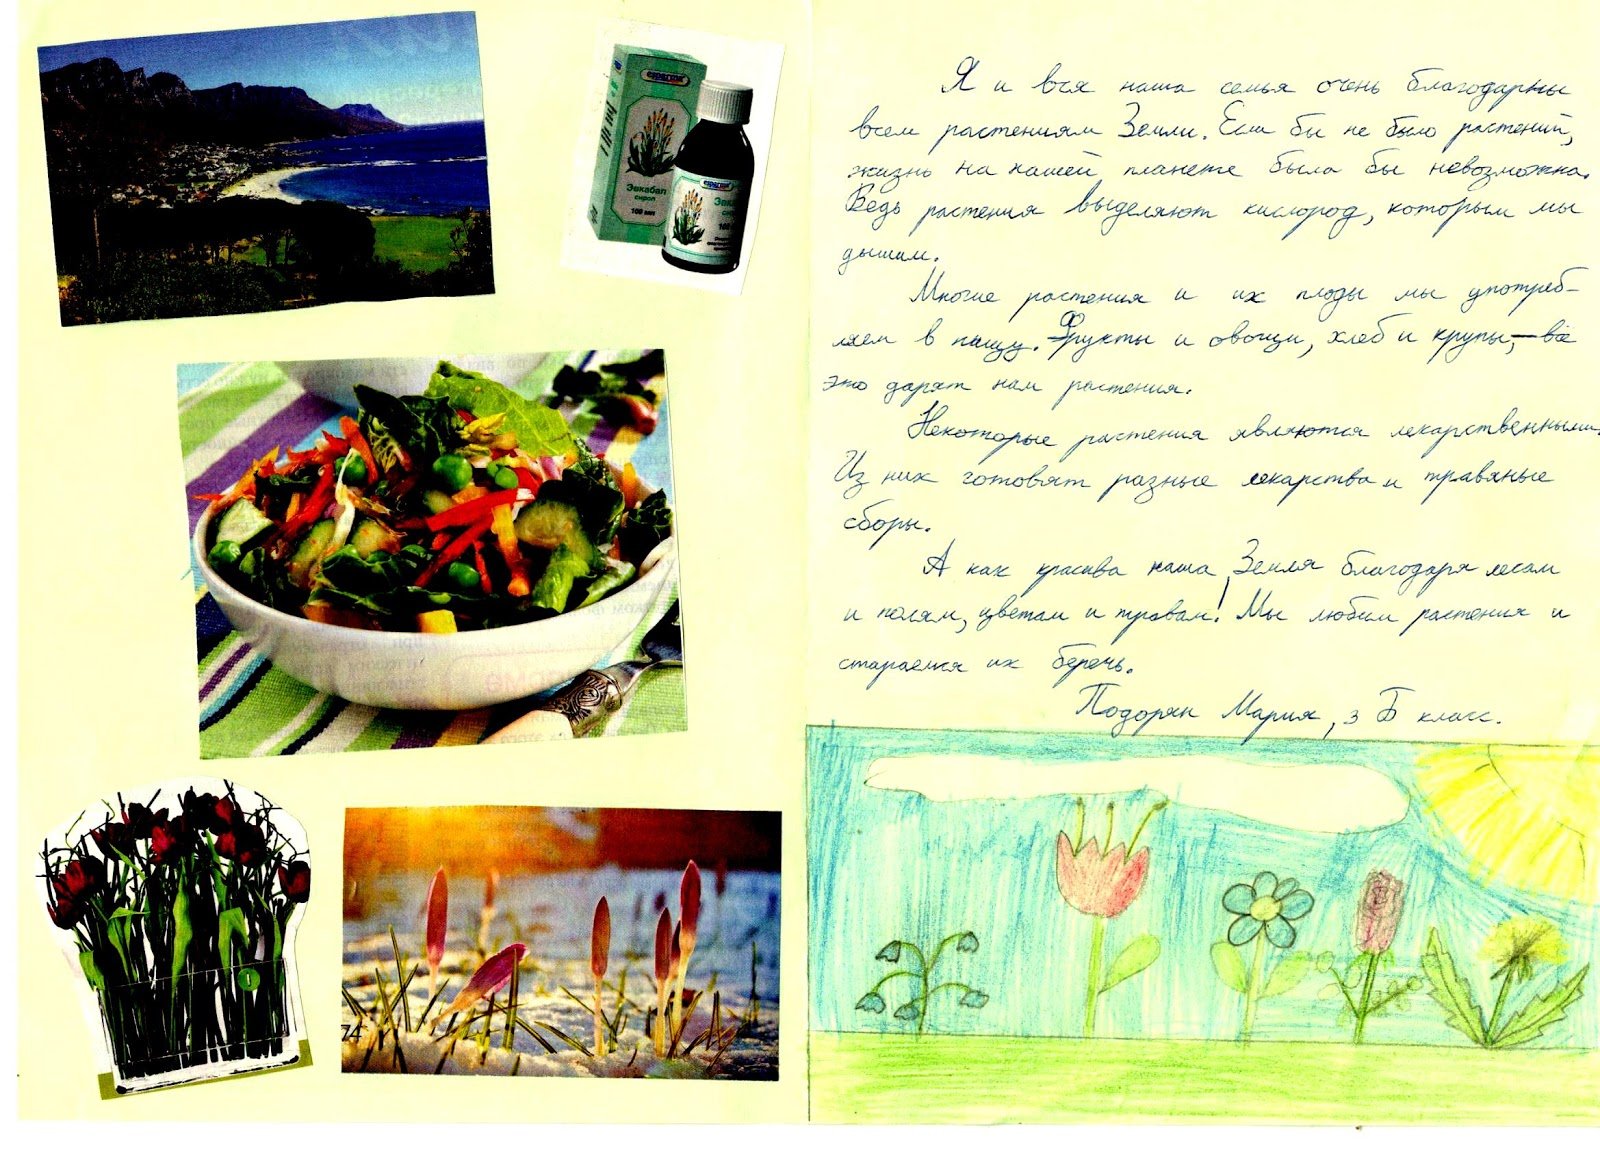 Эвкабал
сироп
100 мл
Эвка
сироп
100
Я и вся наша семья очень благодарны
всем растениям Земли. Если бы не было растений,
жизнь на нашей планете была бы невозможна.
Ведь растения выделяют кислород, которым мы
дышим.
Многие растения и их плоды мы употреб-
ляем в пищу. Фрукты и овощи, хлеб и крупы, – всё
это дарят нам растения.
Некоторые растения являются лекарственными.
Из них готовят разные лекарства и травяные
сборы.
А как красива наша Земля благодаря лесам
и полям, цветам и травам! Мы любим растения и
стараемся их беречь.
Подорян Мария, 3 Б класс.
1
74